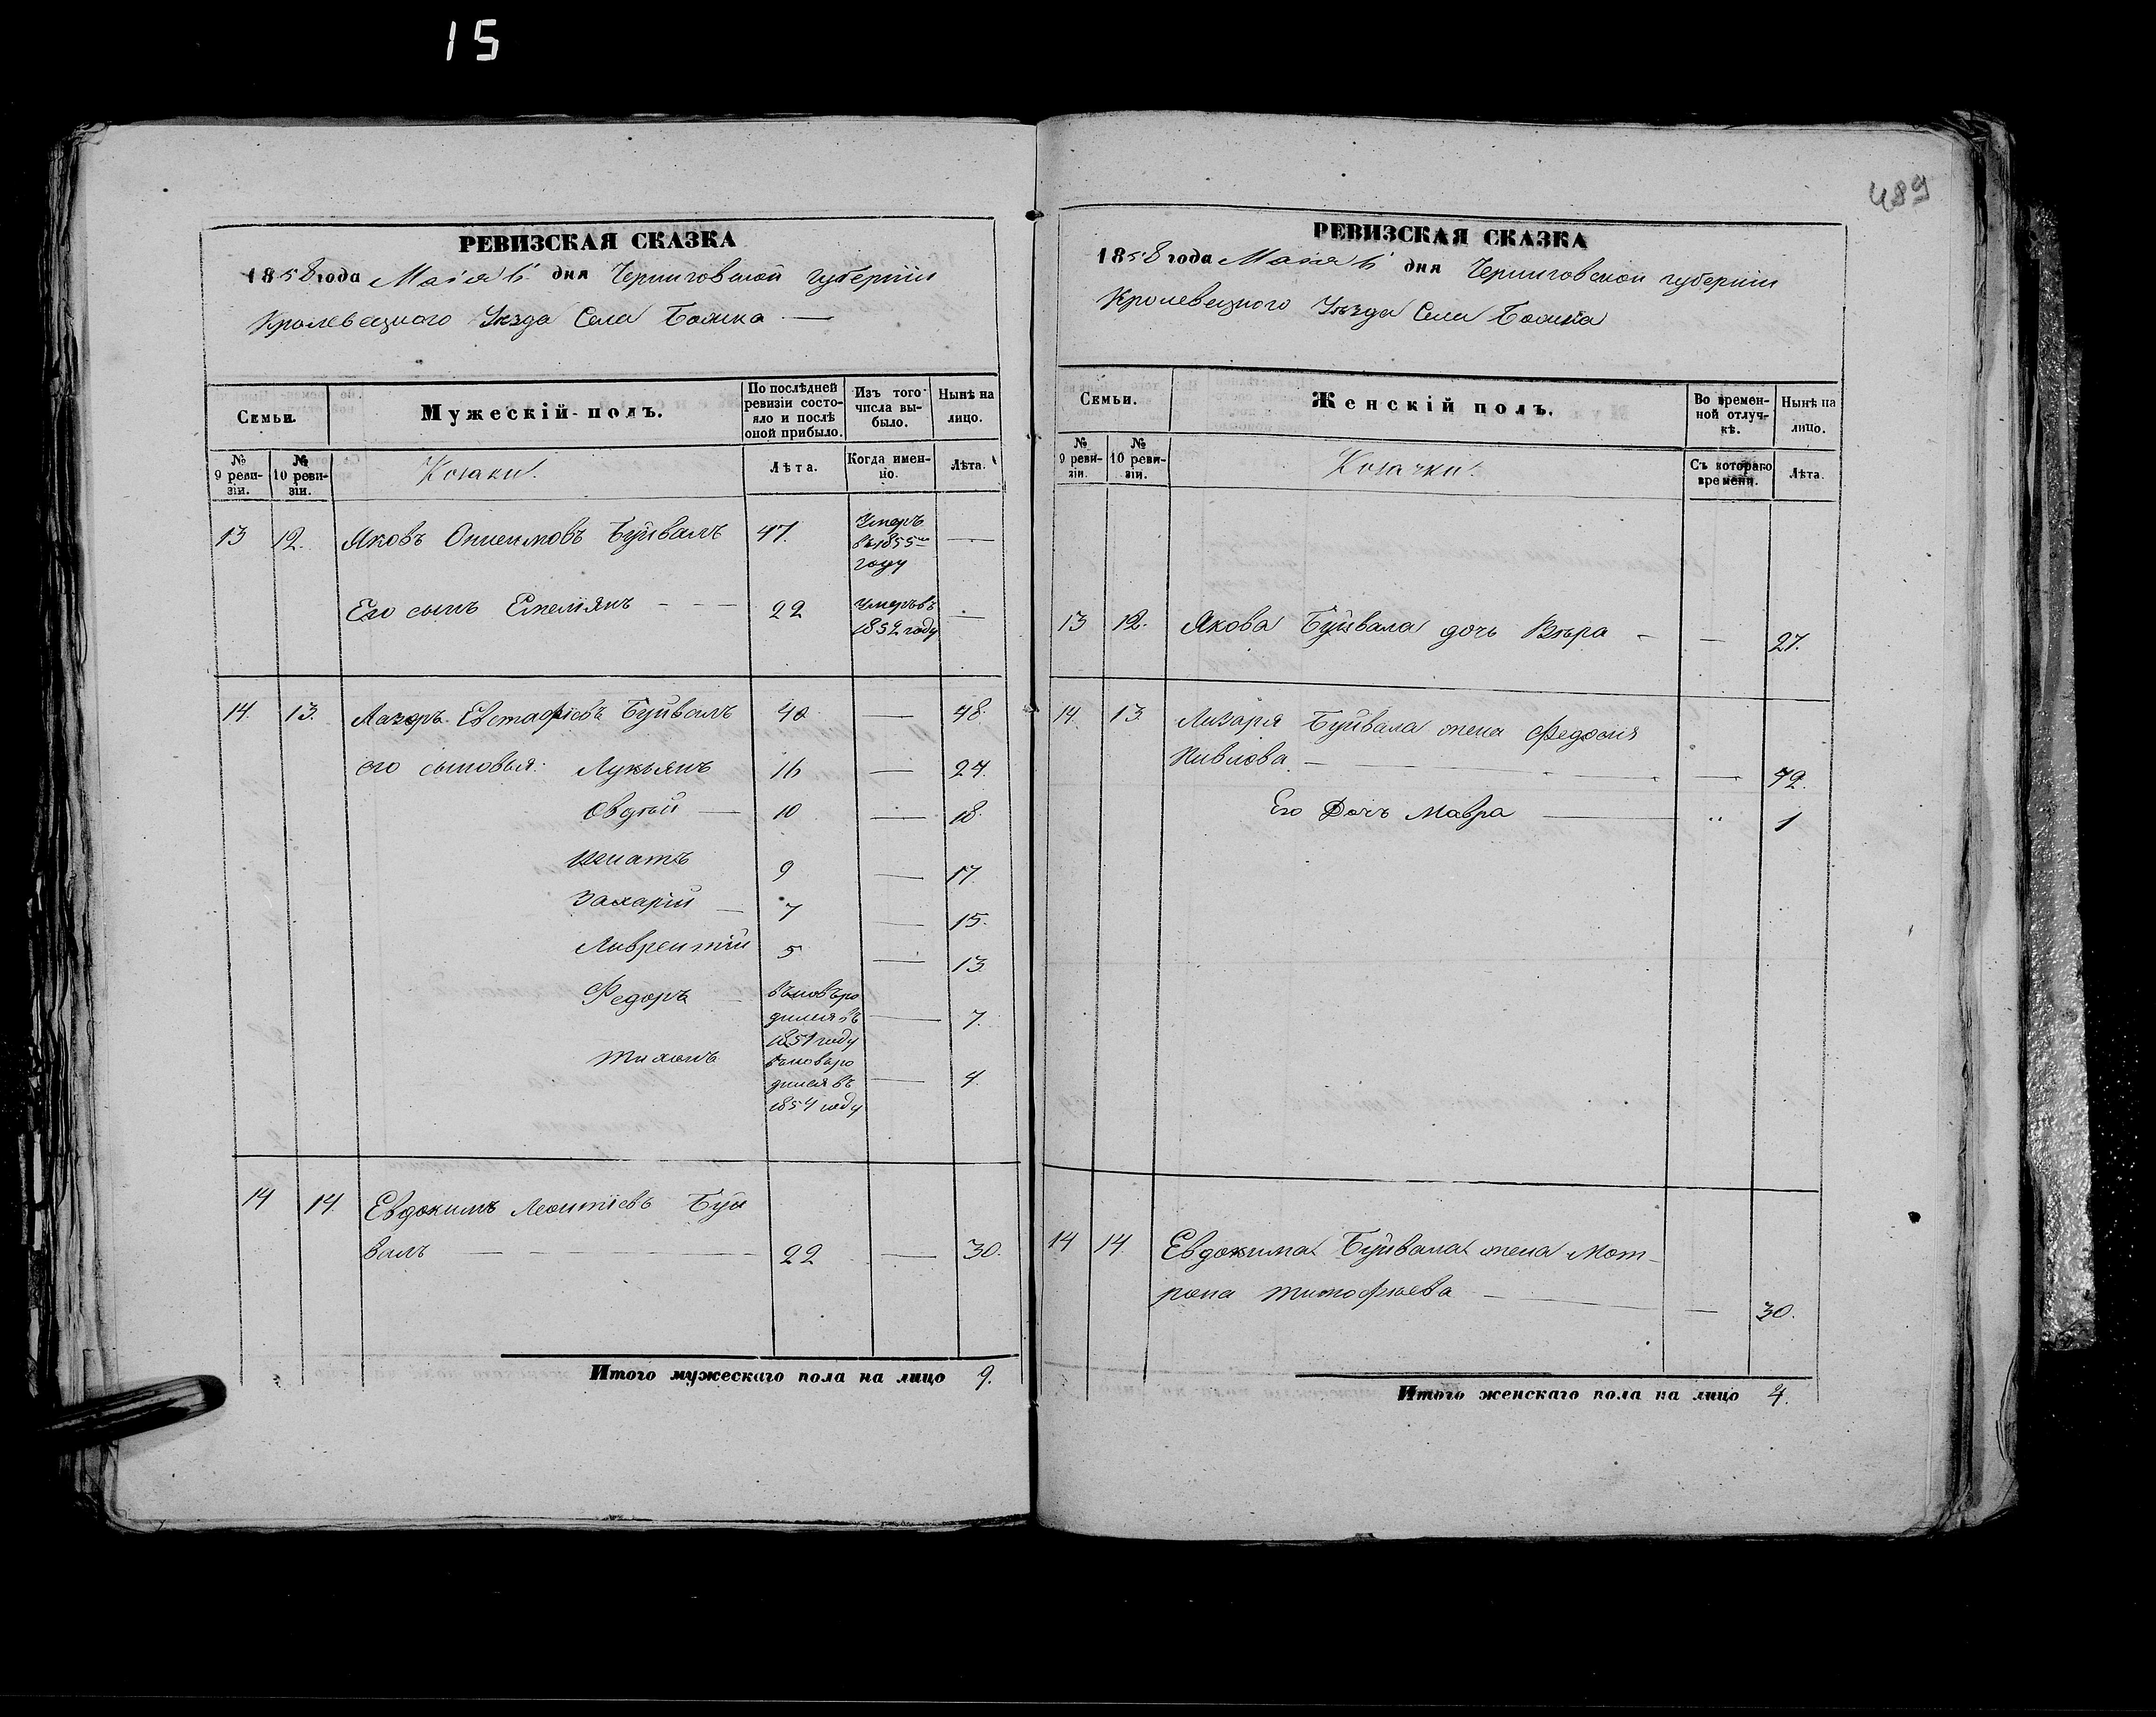 15
489
РЕВИЗСКАЯ СКАЗКА
1858 года Маія 6 дня Черниговской губерніи
Кролевецкого Уѣзда Села
Семьи.
Мужескій полъ.
По послѣдней ревизіи состояло и послѣ оной прибыло.
Изъ того числа выбыло.
Нынѣ на лицо.
№ 9 ревизіи.
№ 10 ревизіи.
Козаки.
Лѣта.
Когда именно.
Лѣта.
13 12. Яковъ Онисимовъ Буйвалъ 47. Умеръ въ 1855 году —
Его сынъ Емелиянъ - - - 22 Умеръ въ 1852 году —
14. 13. Лазарь Евстафіевъ Буйвалъ 40 — 48.
его сыновья: Лукьянъ 16 — 24.
Овдѣй — 10 — 18.
Игнатъ 9 — 17.
Захарій — 7 — 15.
Лаврентій 5 — 13.
Федоръ — вновь родился въ 1851 году — 7.
Тихонъ вновь родился въ 1854 году — 4.
14 14 Евдокимъ Леонтіевъ Буй
валъ — 22 — 30.
Итого мужескаго пола на лицо 9.
РЕВИЗСКАЯ СКАЗКА
1858 года Маія 6 дня Черниговской губерніи
Кролевецкого Уѣзда Села
Семьи.
Женскій полъ.
Во временной отлучкѣ.
Нынѣ на лицо.
№ 9 ревизіи.
№ 10 ревизіи.
Козачки.
Съ котораго времени.
Лѣта.
13 12. Якова Буйвала дочь Вѣра - — 27.
14. 13. Лазаря Буйвала жена Федосія
Павлова. — — 42.
Его Дочь Мавра — „ 1
14 14. Евдокима Буйвала жена Мот-
рона Тимофѣева — — 30.
Итого женскаго пола на лицо 4.